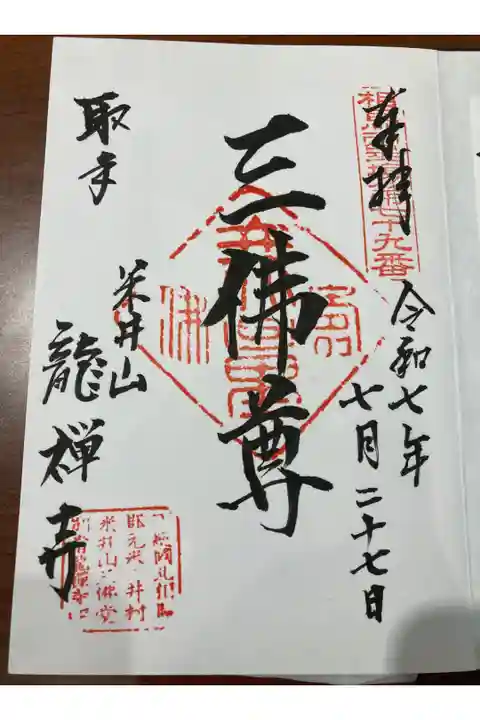 奉拝
七十九番
令和七年
七月二十七日
三佛尊
取手
米井山
龍禅寺
米井山三佛堂